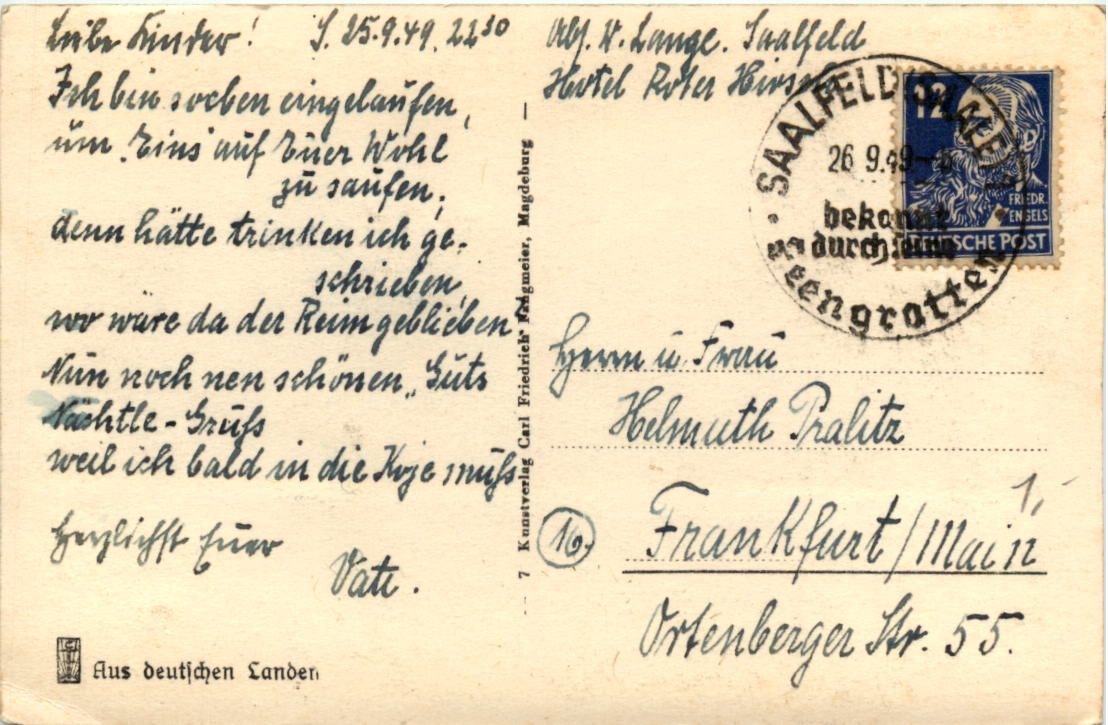 Liebe Kinder! S. 25.9.49. 22³⁰
Ich bin soeben eingelaufen,
um „Eins“ auf Euer Wohl
zu saufen;
denn hätte trinken ich ge-
schrieben,
wo wäre da der Reim geblieben?
Nun noch nen schönen „Guts
Nächtle-Gruß
weil ich bald in die Koje muß
Herzlichst Euer
Vati.
Aus deutschen Landen
7 Kunstverlag Carl Friedrich Fangmeier, Magdeburg
Abs. W. Lange. Saalfeld
Hotel Roter Hirsch
12
FRIEDR.
ENGELS
DEUTSCHE POST
SAALFELD (SAALE)
26.9.49
bekannt
durch seine
Feengrotten
Herrn u. Frau
Helmuth Pralitz
16
Frankfurt/Main
1,
Ortenberger Str. 55.